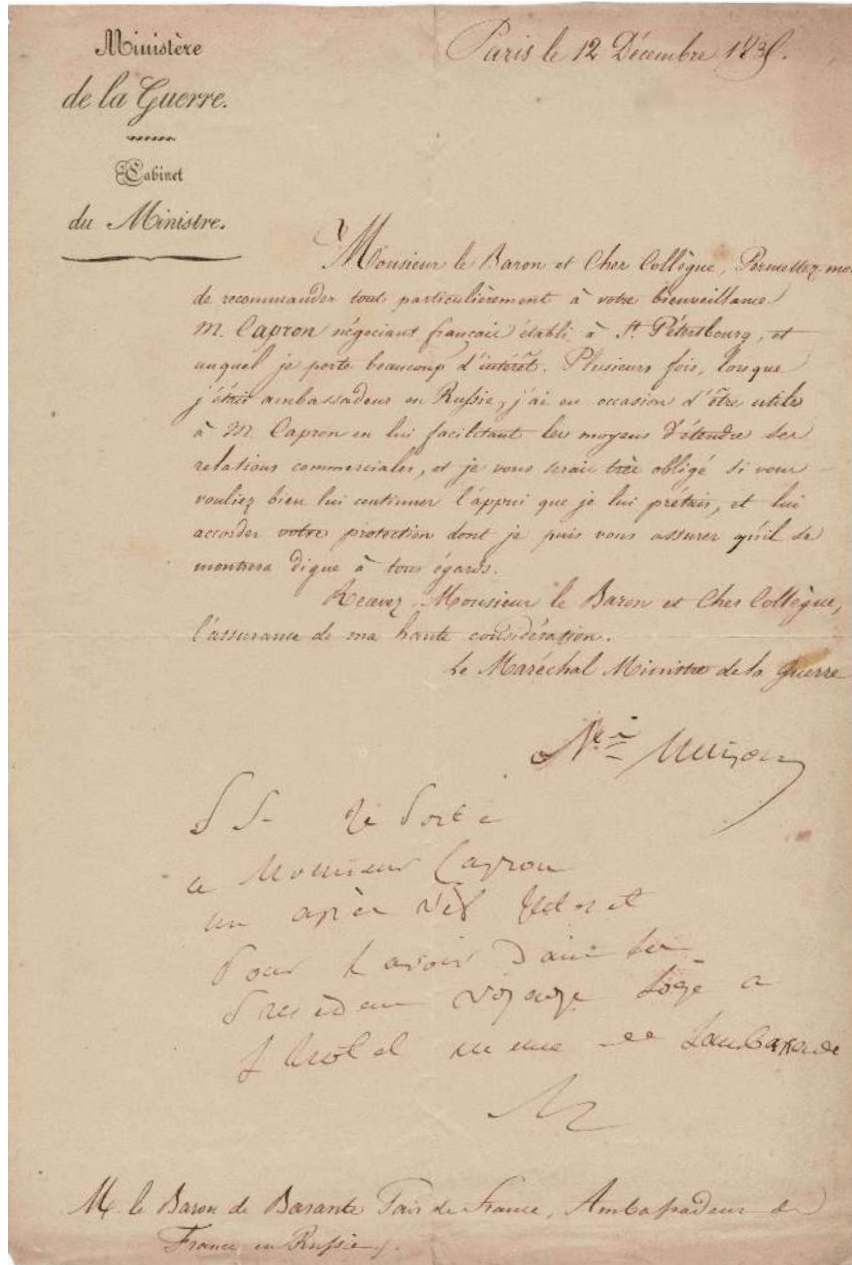 Ministère
de la Guerre.
Cabinet
du Ministre.
Paris le 12 Décembre 1835.
Monsieur le Baron et Cher Collègue, Permettez-moi
de recommander tout particulièrement à votre bienveillance
M. Capron négociant français établi à St. Pétersbourg, et
auquel je porte beaucoup d'intérêt. Plusieurs fois, lorsque
j'étais ambassadeur en Russie, j'ai eu occasion d'être utile
à M. Capron en lui facilitant les moyens d'étendre ses
relations commerciales, et je vous serais très obligé si vous
vouliez bien lui continuer l'appui que je lui prêtais, et lui
accorder votre protection dont je puis vous assurer qu'il se
montrera digne à tous égards.
Recevez, Monsieur le Baron et Cher Collègue,
l'assurance de ma haute considération.
Le Maréchal Ministre de la Guerre
Mis Maison
P S- Je porte
a Monsieur Capron
un
pour l'avoir dans
voyage logé a
l'hotel meme
M
M. le Baron de Barante Pair de France, Ambassadeur de
France en Russie.